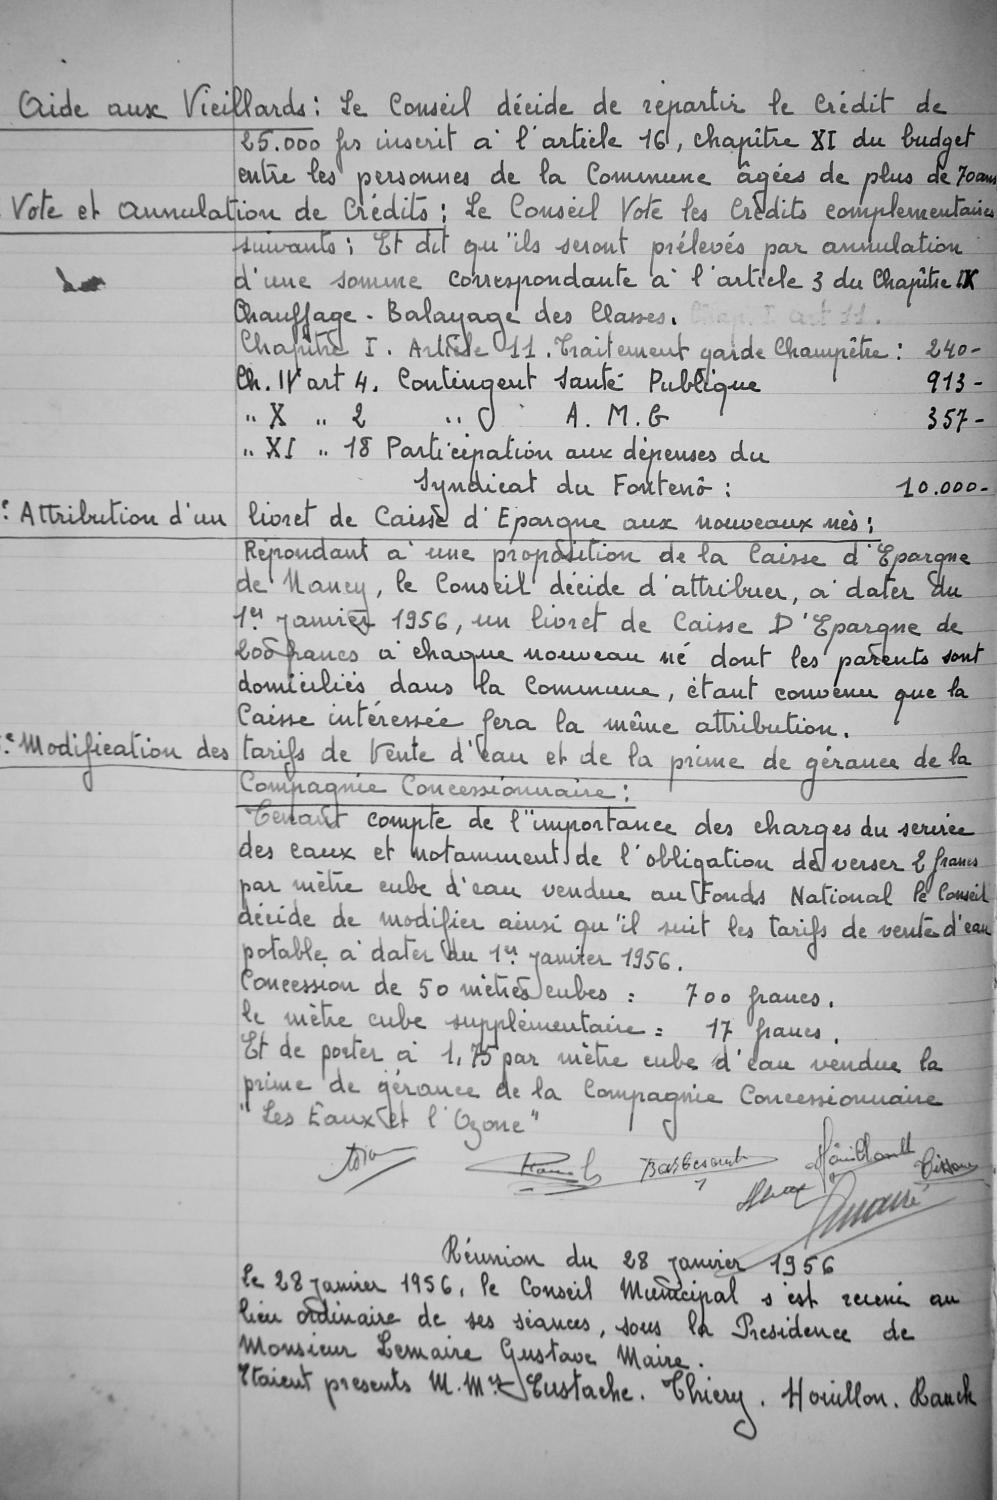 Aide aux Vieillards : Le Conseil décide de répartir le Crédit de
25.000 frs inscrit à l'article 16, chapître XI du budget
entre les personnes de la Commune âgées de plus de 70 ans
Vote et annulation de Crédits : Le Conseil Vote les Crédits complementaires
suivants ; Et dit qu'ils seront prélevés par annulation
d'une somme correspondante à l'article 3 du Chapître IX
Chauffage - Balayage des Classes. Chap. I art 11.
Chapître I. Article 11. Traitement garde Champêtre : 240-
Ch. IV art 4. Contingent Santé Publique 913-
" X " 2 " A. M. G 357-
" XI " 18 Participation aux dépenses du
Syndicat du Fontenô : 10.000-
Attribution d'un livret de Caisse d'Epargne aux nouveaux nés ;
Répondant à une proposition de la Caisse d'Epargne
de Nancy, le Conseil décide d'attribuer, à dater du
1er janvier 1956, un livret de Caisse D'Epargne de
200 francs à chaque nouveau né dont les parents sont
domiciliés dans la Commune, étant convenu que la
Caisse intéressée fera la même attribution.
Modification des tarifs de Vente d'eau et de la prime de gérance de la
Compagnie Concessionnaire :
Tenant compte de l'importance des charges du service
des eaux et notamment de l'obligation de verser 2 francs
par mètre cube d'eau vendue au Fonds National le Conseil
décide de modifier ainsi qu'il suit les tarifs de vente d'eau
potable à dater du 1er janvier 1956.
Concession de 50 mètres cubes : 700 francs.
le mètre cube supplémentaire : 17 francs.
Et de porter à 1,75 par mètre cube d'eau vendue la
prime de gérance de la Compagnie Concessionnaire
"Les Eaux et l'Ozone"
Réunion du 28 janvier 1956
le 28 janvier 1956, le Conseil Municipal s'est réuni au
lieu ordinaire de ses séances, sous la Presidence de
Monsieur Lemaire Gustave Maire.
Etaient presents M. Mrs Eustache. Thiery. Houillon. Rauch